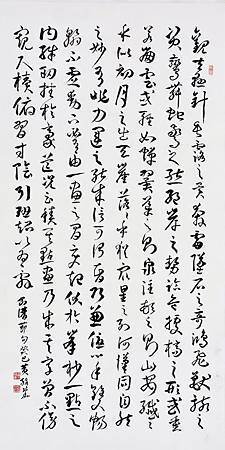 觀夫懸針垂露之異奔雷墜石之奇鴻飛獸駭之
資鸞舞蛇驚之態絕岸頹峰之勢臨危據槁之形或重
若崩雲或輕如蟬翼導之則泉注頓之則山安纖纖
乎似初月之出天崖落落乎猶眾星之列河漢同自然
之妙有非力運之能成信可謂智巧兼優心手雙暢
翰不虛動下必有由一畫之間變起伏於峰杪一點之
內殊衄挫於豪芒況云積其點畫乃成其字曾不傍
窺尺牘俯習寸陰引班超以為辭